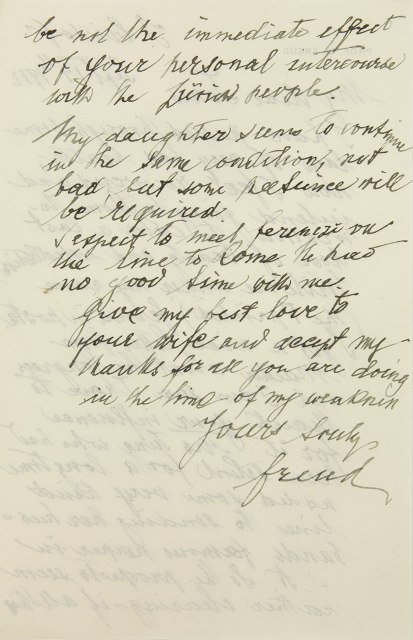 be not the immediate effect
of your personal intercourse
with the Zürich people.
My daughter seems to continue
in the same condition, not
bad, but some patience will
be required.
I expect to meet Ferenczi on
the line to Rome. He had
no good time with me.
Give my best love to
your wife and accept my
thanks for all you are doing
in the time of my weakness
Yours truly
Freud